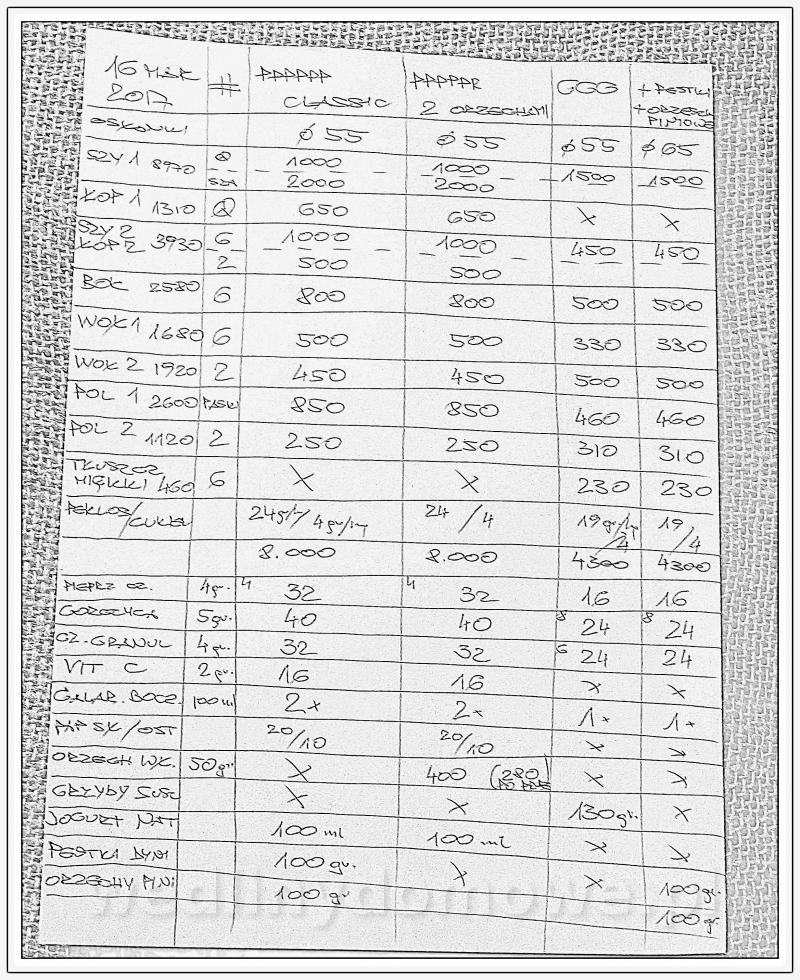 16 MAR # PPPPPP PPPPPR GGG + PESTKI
2017 CLASSIC Z ORZECHAMI + ORZESZKI PINIOWE
OSŁONKI ø 55 ø 55 ø 55 ø 65
SZY 1 8970 1000 1000 1500 1500
SZA 2000 2000
ŁOP 1 1310 650 650 X X
SZY 2 6 1000 1000 450 450
ŁOP 2 3930 2 500 500
BOK 2580 6 800 800 500 500
WOŁ 1 1680 6 500 500 330 330
WOŁ 2 1920 2 450 450 500 500
POL 1 2600 PASKI 850 850 460 460
POL 2 1120 2 250 250 310 310
TŁUSZCZ
MIĘKKI 460 6 X X 230 230
PEKLOS/CUKIER 24gr/4gr/kg 24/4 19gr/kg/4 19/4
8.000 8.000 4300 4300
PIEPRZ CZ. 4gr. 4 32 4 32 16 16
GORCZYCA 5gr. 40 40 8 24 8 24
CZ. GRANUL 4gr. 32 32 6 24 24
VIT C 2gr. 16 16 X X
GALAR. BOCZ. 100ml 2x 2x 1x 1x
PAP SŁ/OST 20/10 20/10 X X
ORZECH WŁ. 50gr. X 400 (280) X X
GRZYBY SUSZ X X 130gr. X
JOGURT NAT 100 ml 100 ml X X
PESTKI DYNI 100 gr. X X 100 gr.
ORZECHY PINI 100 gr 100 gr.
wedlinydomowe.pl